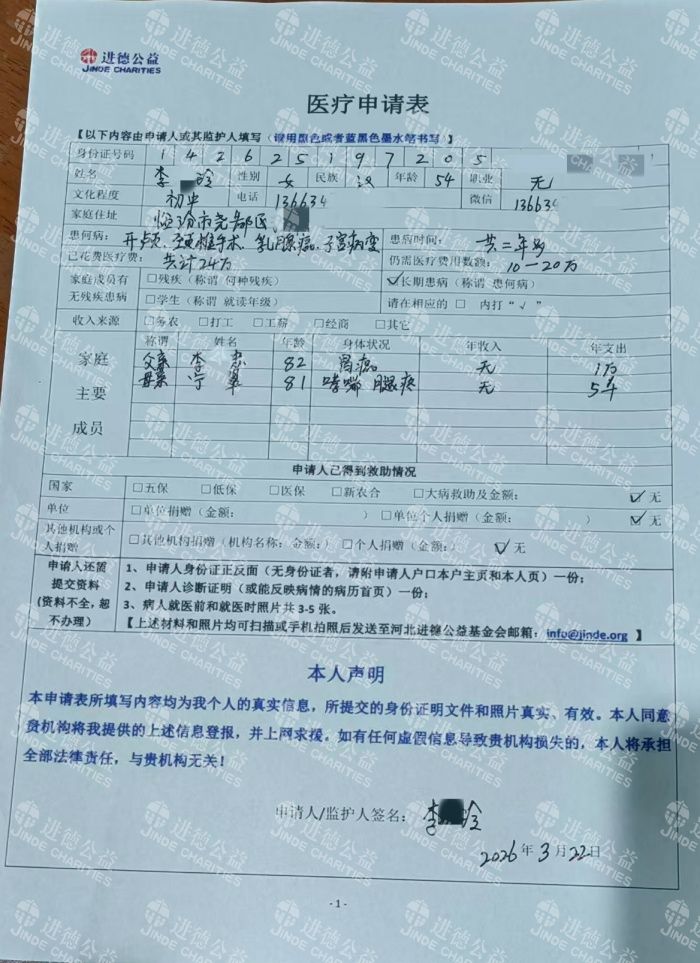 进德公益
JINDE CHARITIES
医疗申请表
【以下内容由申请人或其监护人填写（请用黑色或者蓝黑色墨水笔书写）】
身份证号码 1 4 2 6 2 5 1 9 7 2 0 5
姓名 李 玲 性别 女 民族 汉 年龄 54 职业 无
文化程度 初中 电话 136634 微信 136634
家庭住址 临汾市尧都区、
患何病： 开颅、颈椎手术、乳腺癌、子宫病变 患病时间： 共二年多
已花费医疗费： 共计24万 仍需医疗费用数额： 10-20万
家庭成员有无残疾患病 □残疾（称谓 何种残疾） ☑长期患病（称谓 患何病）
□学生（称谓 就读年级） 请在相应的 □ 内打“√”
收入来源 □务农 □打工 □工薪 □经商 □其它
家庭主要成员 称谓 姓名 年龄 身体状况 年收入 年支出
父亲 李 82 胃癌 无 1万
母亲 宁 翠 81 哮喘 腿疼 无 5千
申请人已得到救助情况
国家 □五保 □低保 □医保 □新农合 □大病救助及金额： ☑无
单位 □单位捐赠（金额： ） □单位个人捐赠（金额： ） ☑无
其他机构或个人捐赠 □其他机构捐赠（机构名称：金额：） □个人捐赠（金额：） ☑无
申请人还需提交资料（资料不全，恕不办理）
1、申请人身份证正反面（无身份证者，请附申请人户口本户主页和本人页）一份；
2、申请人诊断证明（或能反映病情的病历首页）一份；
3、病人就医前和就医时照片共 3-5 张。
【上述材料和照片均可扫描或手机拍照后发送至河北进德公益基金会邮箱：info@jinde.org 】
本人声明
本申请表所填写内容均为我个人的真实信息，所提交的身份证明文件和照片真实、有效。本人同意
贵机构将我提供的上述信息登报，并上网求援。如有任何虚假信息导致贵机构损失的，本人将承担
全部法律责任，与贵机构无关！
申请人/监护人签名： 李 玲
2026 年 3 月 22 日
- 1 -